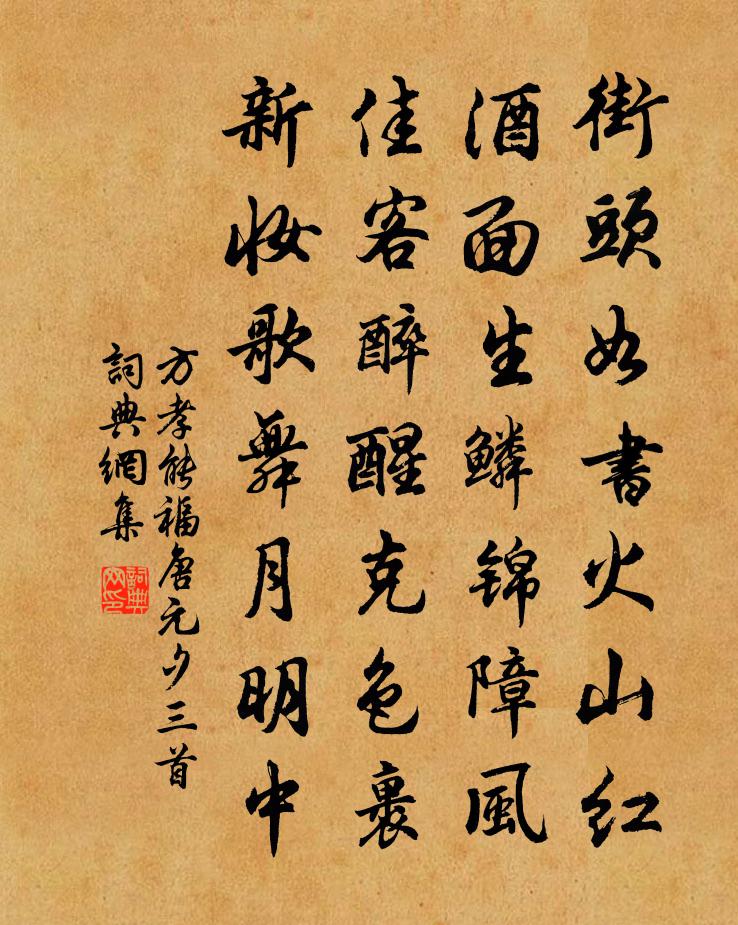 街頭如書火山紅
酒面生鱗錦障風
佳客醉醒克色裏
新妝歌舞月明中
方孝能福唐元夕三首
詞典網集
詞典网印